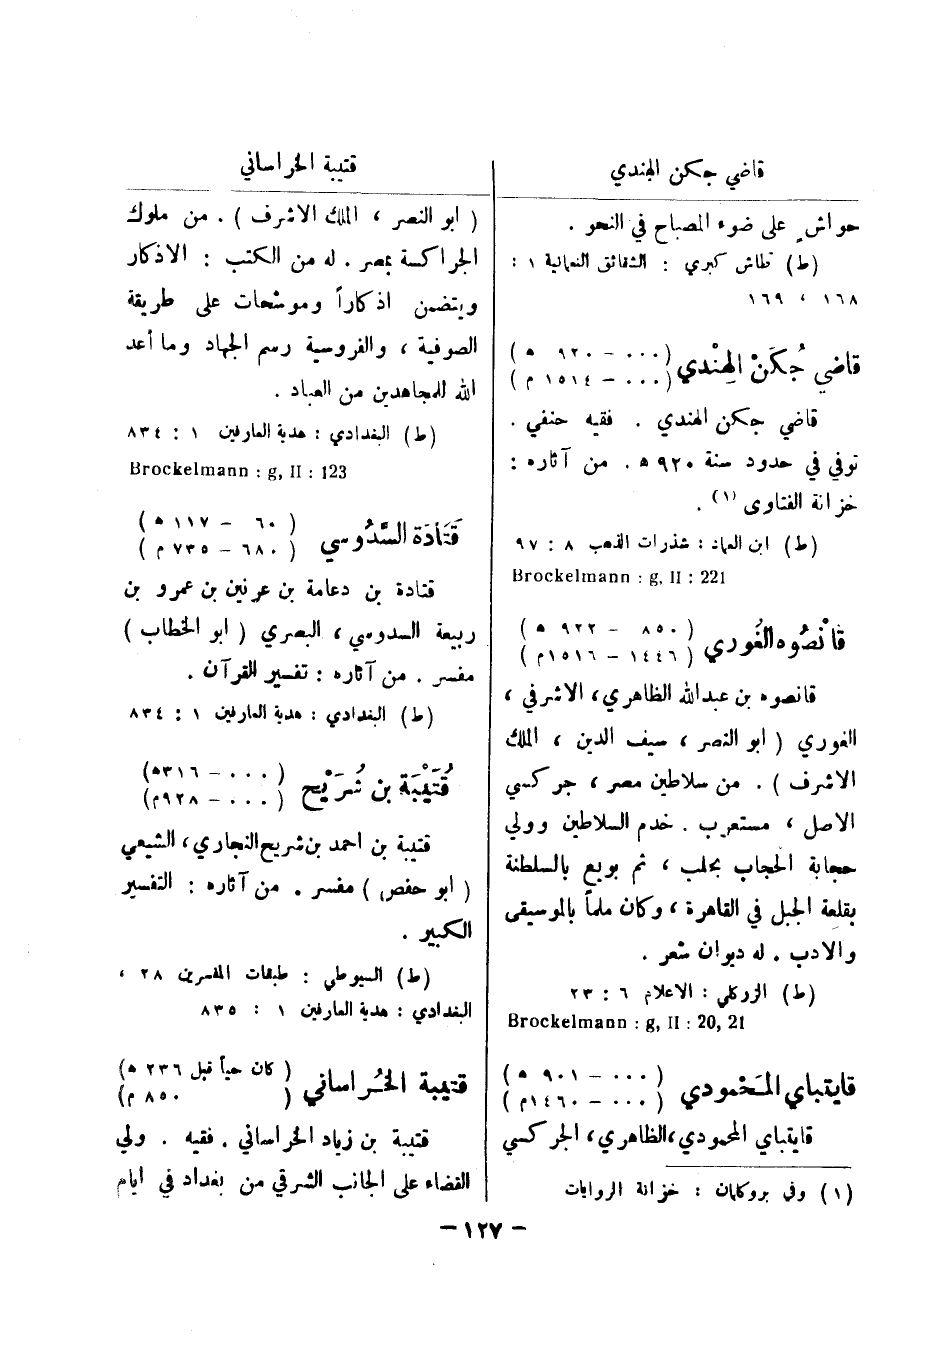 قاضي جكن الهندي
حواشٍ على ضوء المصباح في النحو .
(ط) طاش كبري : الشقائق النعمانية ١ :
١٦٨ ، ١٦٩
قاضي جُكَنْ الهِنْدي (٠٠٠ – ٩٢٠ ه)
(٠٠٠ – ١٥١٤ م)
قاضي جكن الهندي . فقيه حنفي .
توفي في حدود سنة ٩٢٠ ه . من آثاره :
خزانة الفتاوى (١) .
(ط) ابن العماد : شذرات الذهب ٨ : ٩٧
Brockelmann : g, II : 221
قانْصُوه الغُوري (٨٥٠ – ٩٢٢ ه)
(١٤٤٦ – ١٥١٦م)
قانصوه بن عبدالله الظاهري ، الاشرفي ،
الغوري ( ابو النصر ، سيف الدين ، الملك
الاشرف ) . من سلاطين مصر ، جركسي
الاصل ، مستعرب . خدم السلاطين وولي
حجابة الحجاب بحلب ، ثم بويع بالسلطنة
بقلعة الجبل في القاهرة ، وكان ملماً بالموسيقى
والادب . له ديوان شعر .
(ط) الزركلي : الاعلام ٦ : ٢٣
Brockelmann : g, II : 20, 21
قايتباي المَحْمودي (٠٠٠ – ٩٠١ ه)
(٠٠٠ – ١٤٦٠م)
قايتباي المحمودي ، الظاهري ، الجركسي
(١) وفي بروكلمان : خزانة الروايات
قتيبة الخراساني
( ابو النصر ، الملك الاشرف ) . من ملوك
الجراكسة بمصر . له من الكتب : الاذكار
ويتضمن اذكاراً وموشحات على طريقة
الصوفية ، والفروسية رسم الجهاد وما أعد
الله للمجاهدين من العباد .
(ط) البغدادي : هدية العارفين ١ : ٨٣٤
Brockelmann : g, II : 123
قَتَادَة السَّدُوسي (٦٠ – ١١٧ ه)
(٦٨٠ – ٧٣٥ م)
قتادة بن دعامة بن عرنين بن عمرو بن
ربيعة السدوسي ، البصري ( ابو الخطاب )
مفسر . من آثاره : تفسير القرآن .
(ط) البغدادي : هدية العارفين ١ : ٨٣٤
قُتَيْبَة بن شُرَيْح (٠٠٠ – ٣١٦ه)
(٠٠٠ – ٩٢٨م)
قتيبة بن احمد بن شريح النجاري ، الشيعي
( ابو حفص ) مفسر . من آثاره : التفسير
الكبير .
(ط) السيوطي : طبقات المفسرين ٢٨ ،
البغدادي : هدية العارفين ١ : ٨٣٥
قتيبة الخُراساني ( كان حياً قبل ٢٣٦ ه)
( ٨٥٠ م)
قتيبة بن زياد الخراساني . فقيه . ولي
القضاء على الجانب الشرقي من بغداد في ايام
– ١٢٧ –